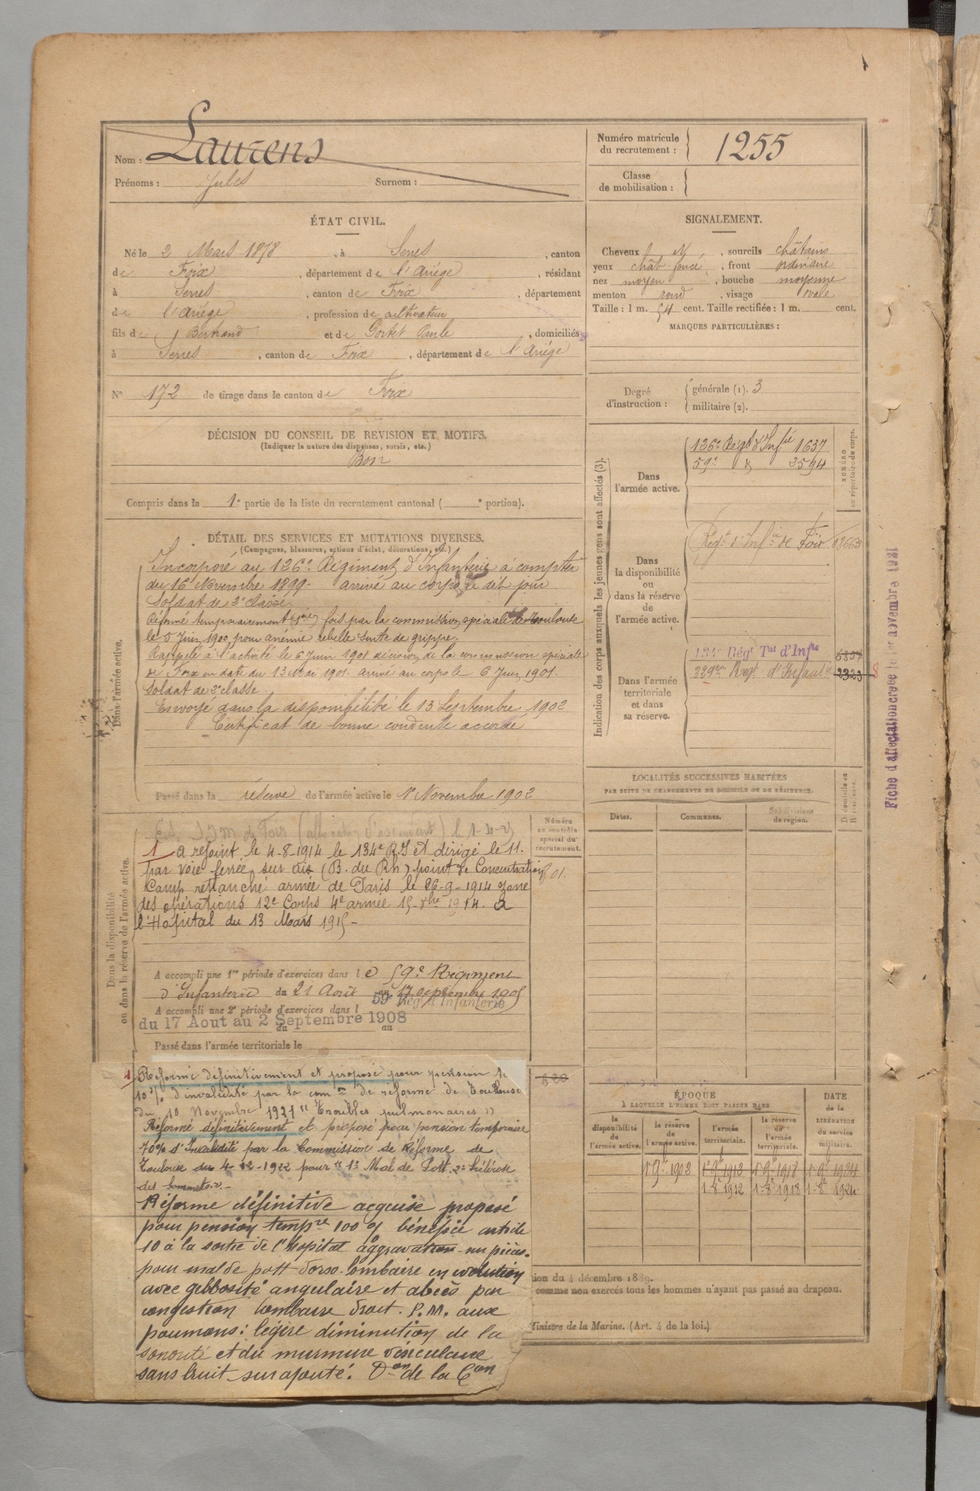 Nom : Laurens
Prénoms : Jules Surnom :
Numéro matricule du recrutement : 1255
Classe de mobilisation :
ÉTAT CIVIL.
Né le 2 Mars 1878, à Serres, canton
de Foix, département de l'Ariége, résidant
à Serres, canton de Foix, département
de l'Ariége, profession de cultivateur
fils de Bertrand et de Paule, domiciliés
à Serres, canton de Foix, département de l'Ariége
N° 172 de tirage dans le canton de Foix
DÉCISION DU CONSEIL DE REVISION ET MOTIFS.
(Indiquer la nature des dispenses, sursis, etc.)
Bon
Compris dans la 1e partie de la liste du recrutement cantonal ( e portion).
SIGNALEMENT.
Cheveux N, sourcils châtains
yeux chât foncé, front ordinaire
nez moyen, bouche moyenne
menton rond, visage ovale
Taille : 1 m. 54 cent. Taille rectifiée : 1 m. cent.
MARQUES PARTICULIÈRES :
Degré d'instruction : générale (1). 3
militaire (2).
DÉTAIL DES SERVICES ET MUTATIONS DIVERSES.
(Campagnes, blessures, actions d'éclat, décorations, etc.)
Dans l'armée active.
Incorporé au 126e Régiment d'Infanterie à compter
du 16 Novembre 1899 - arrivé au corps le dit jour
Soldat de 2e classe
Réformé temporairement fois par la commission spéciale de Toulouse
le 5 Juin 1900 pour anémie rebelle suite de grippe
Rappelé à l'activité le 6 Juin 1901 décision de la commission spéciale
de Foix en date du 13 Mai 1901 arrivé au corps le 6 Juin 1901
Soldat de 2e classe
Envoyé dans la disponibilité le 13 Septembre 1902
Certificat de bonne conduite accordé
Passé dans la réserve de l'armée active le 1er Novembre 1902
Indication des corps auxquels les jeunes gens sont affectés (3).
NUMÉRO au répertoire du corps.
Dans l'armée active.
126e Régt d'Infie 1637
59e d 3594
Dans la disponibilité ou dans la réserve de l'armée active.
Régt d'Infie de Foix
Dans l'armée territoriale et dans sa réserve.
Régt Tal d'Infie
Regt d'Infanterie
Fiche d'affectation créée le 1er novembre 1921
LOCALITÉS SUCCESSIVES HABITÉES
PAR SUITE DE CHANGEMENTS DE DOMICILE OU DE RÉSIDENCE.
Dates. Communes. Subdivisions de région.
Dans la disponibilité ou dans la réserve de l'armée active.
Numéro au contrôle spécial du recrutement.
1 a rejoint le 4-8-1914 le 134e R.I et dirigé le 11.
par voie ferrée sur (B. du Rh) point de Concentration
Camp retranché armée de Paris le 26-9-1914 zone
des opérations 12e Corps 4e armée 1914. à
l'Hôpital du 13 Mars 1915 -
A accompli une 1re période d'exercices dans le 59e Régiment
d'Infanterie du 21 Août au 17 septembre 1905
A accompli une 2e période d'exercices dans l 59e Régt d'Infanterie
du 17 Aout au 2 Septembre 1908
Passé dans l'armée territoriale le
1 Réformé définitivement et proposé pour pension
10% d'invalidité par la com on de réforme de Toulouse
du 10 Novembre 1921 "Troubles pulmonaires"
Réformé définitivement et proposé pour pension temporaire
70% d'Invalidité par la Commission de Réforme de
Toulouse du 4-12-1922 pour 1° Mal de Pott 2°
des sommets. -
Réforme définitive acquise proposé
pour pension tempre 100% bénéficie article
10 à la sortie de l'hopital aggravation - sur pièces
pour mal de pott dorso-lombaire en evolution
avec gibbosité angulaire et abcès par
congestion lombaire droit. P.M. aux
poumons : légère diminution de la
sonorité et du murmure vésiculaire
sans bruit surajouté. Don de la Con
ÉPOQUE
À LAQUELLE L'HOMME DOIT PASSER DANS
la disponibilité de l'armée active. la réserve de l'armée active. l'armée territoriale. la réserve de l'armée territoriale. DATE de la LIBÉRATION du service militaire.
1 9bre 1902 1 9bre 1912 1 9bre 1918 1 9bre 1924
1-8bre 1912 1-8bre 1918 1-8bre 1924
ion du 4 décembre 1889.
comme non exercés tous les hommes n'ayant pas passé au drapeau.
Ministre de la Marine. (Art. 4 de la loi.)